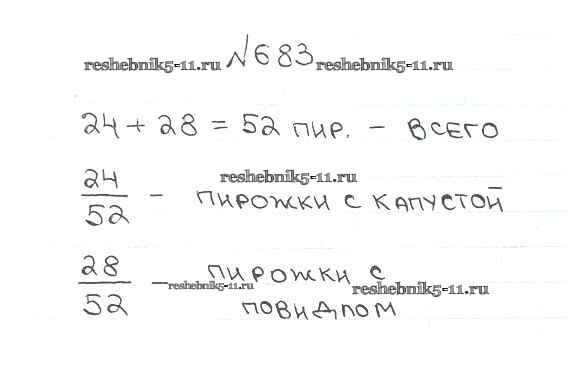 №683
reshebnik5-11.ru reshebnik5-11.ru
24 + 28 = 52 пир. – всего
reshebnik5-11.ru
24/52 – пирожки с капустой
28/52 – пирожки с
reshebnik5-11.ru reshebnik5-11.ru
повидлом